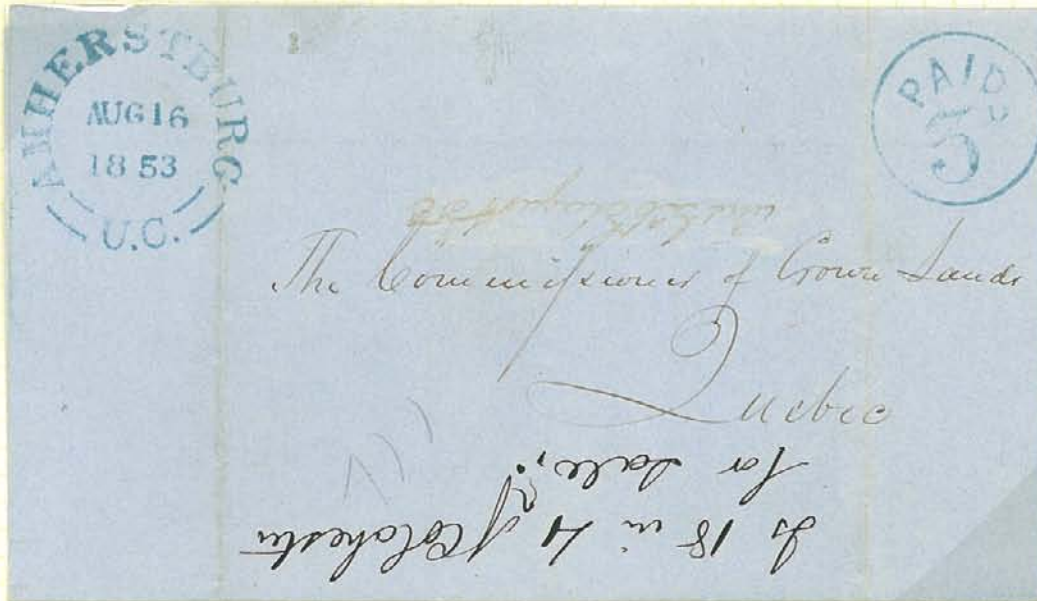 AMHERSTBURG
AUG 16
1853
U.C.
PAID
5D
The Commissioner of Crown Lands
Quebec
Is 18 in 4 of Colchester
for Sale,?